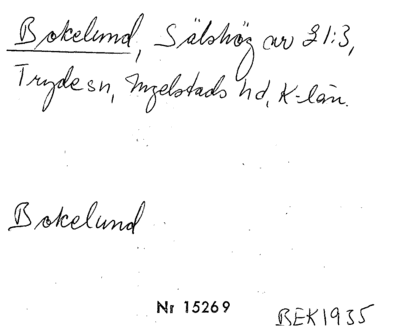 Bokelund, Sälshög av 21:3,
Tryde sn, Ingelstads hd, K-län.
Bokelund
Nr 15269
BEK1935